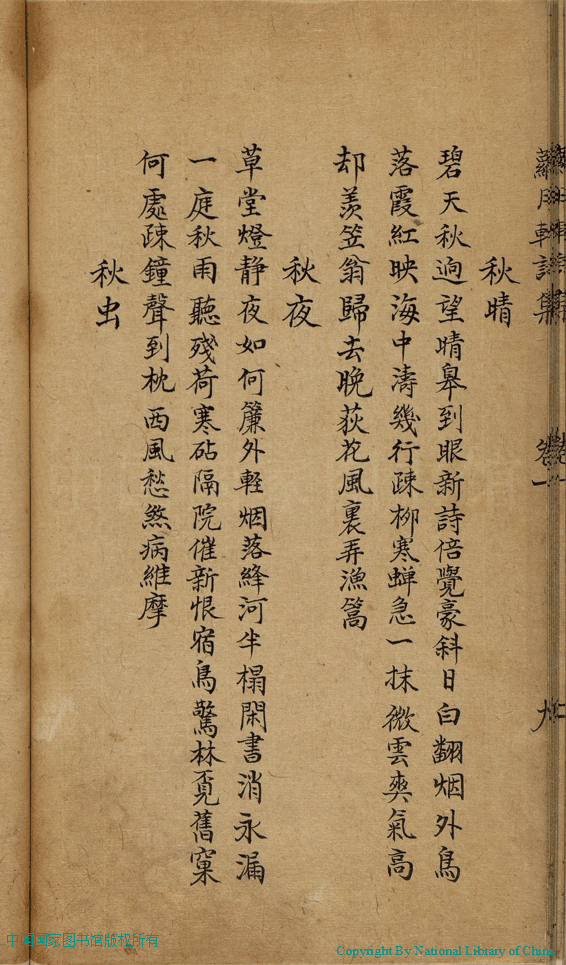 蘿月軒詩集 卷一 九
秋晴
碧天秋逈望晴皋到眼新詩倍覺豪斜日白翻烟外鳥
落霞紅映海中濤幾行疎柳寒蝉急一抹微雲爽氣高
却羨笠翁歸去晚荻花風裏弄漁篙
秋夜
草堂燈静夜如何簾外輕烟落絳河半榻閑書消永漏
一庭秋雨聽殘荷寒砧隔院催新恨宿鳥驚林覔舊窠
何處疎鐘聲到枕西風愁煞病維摩
秋虫
中國國家图书馆版权所有
Copyright By National Library of China